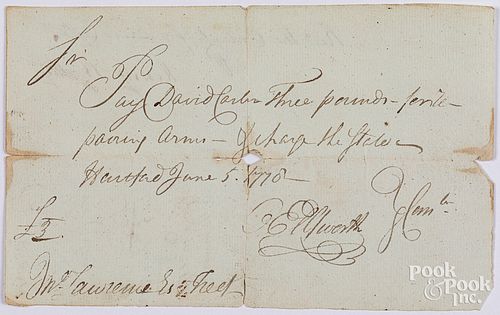 Sir
Pay David Carlin Three pounds for re-
pairing Arms — & charge the State
Hartford June 5. 1778
£3
Ellsworth
Comtee
Jno Lawrence Esqr Treas
POOK
& POOK
Inc.